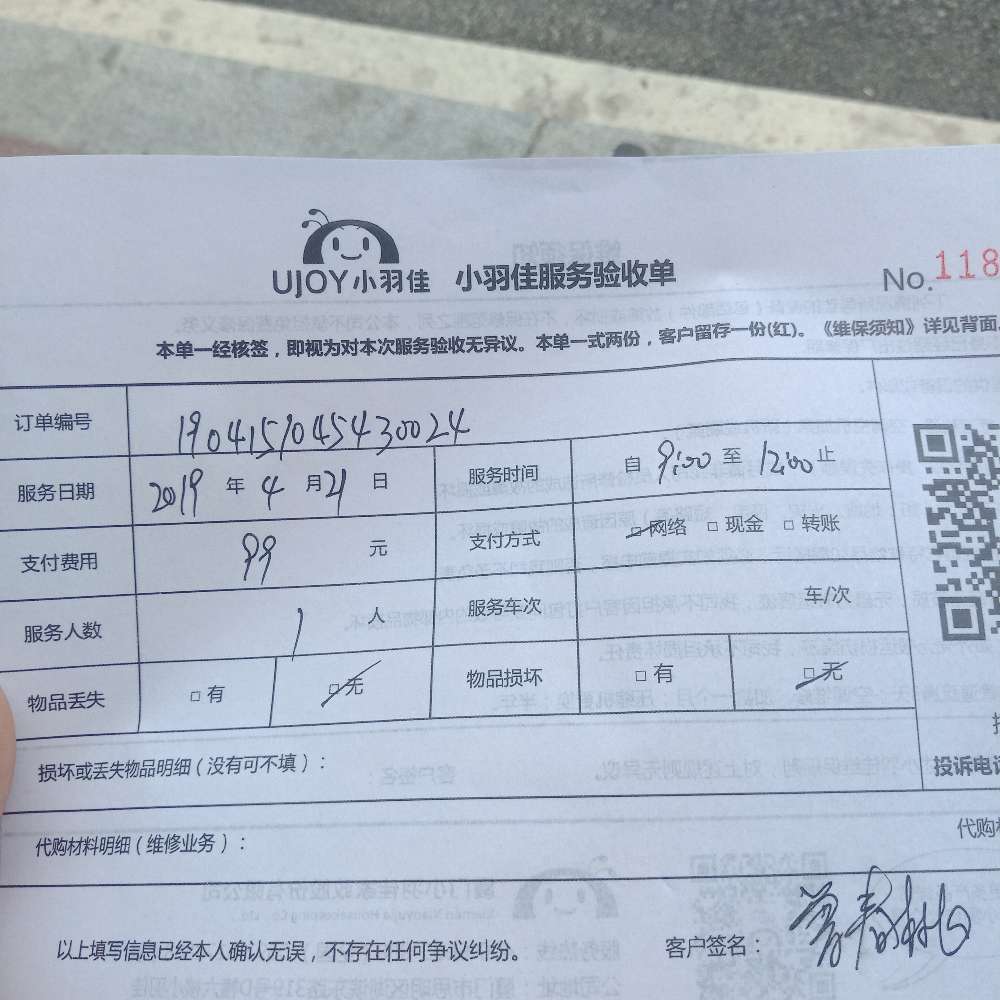 UJOY小羽佳 小羽佳服务验收单
No.118
本单一经核签，即视为对本次服务验收无异议。本单一式两份，客户留存一份(红)。《维保须知》详见背面。
订单编号 1904159045430024
服务日期 2019 年 4 月 21 日 服务时间 自 9:00 至 12:00 止
支付费用 99 元 支付方式 □网络 □现金 □转账
服务人数 1 人 服务车次 车/次
物品丢失 □有 □无 物品损坏 □有 □无
损坏或丢失物品明细（没有可不填）：
投诉电话
代购材料明细（维修业务）：
代购
以上填写信息已经本人确认无误，不存在任何争议纠纷。 客户签名：